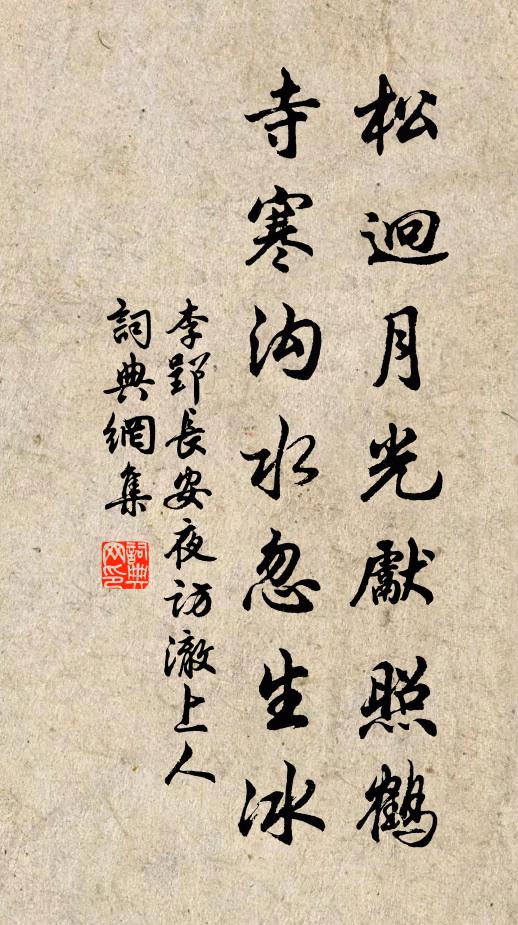 松逈月光獻照鶴
寺寒沟水忽生冰
李郢長安夜訪澈上人
詞典網集
詞典网印